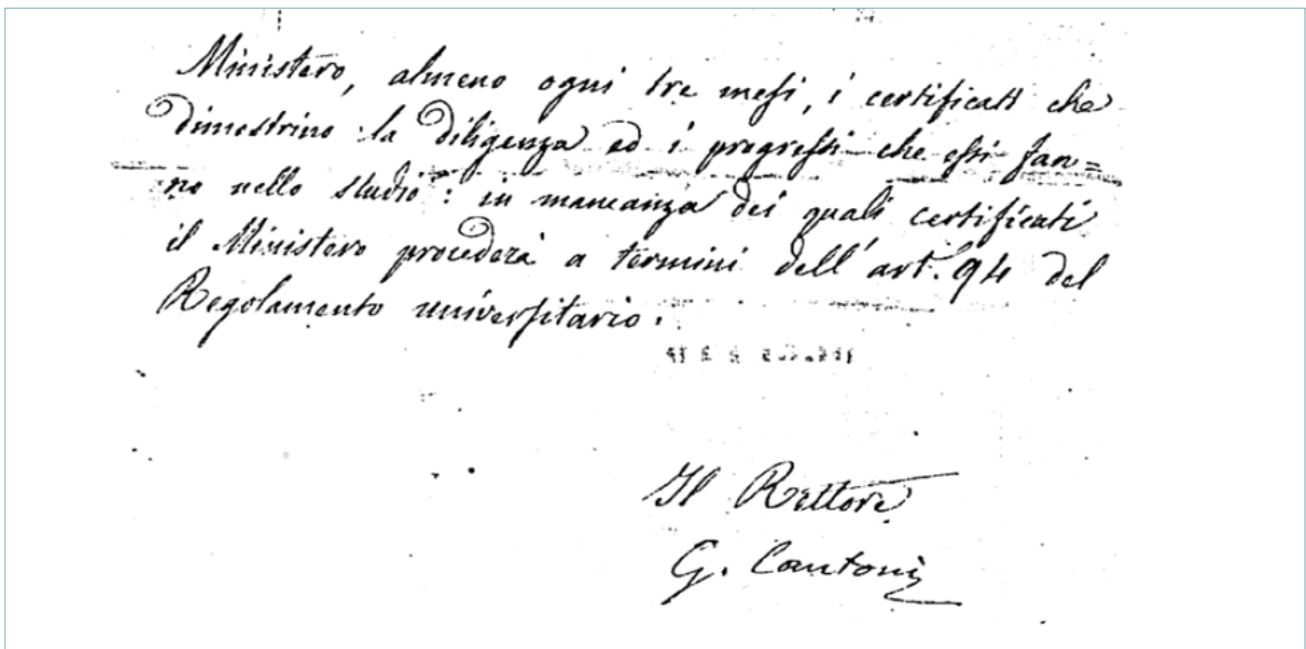 Ministero, almeno ogni tre mesi, i certificati che
dimostrino la diligenza ed i progressi che essi fan=
no nello studio: in mancanza dei quali certificati
il Ministero procederà a termini dell'art. 94 del
Regolamento universitario.
Il Rettore
G. Cantoni